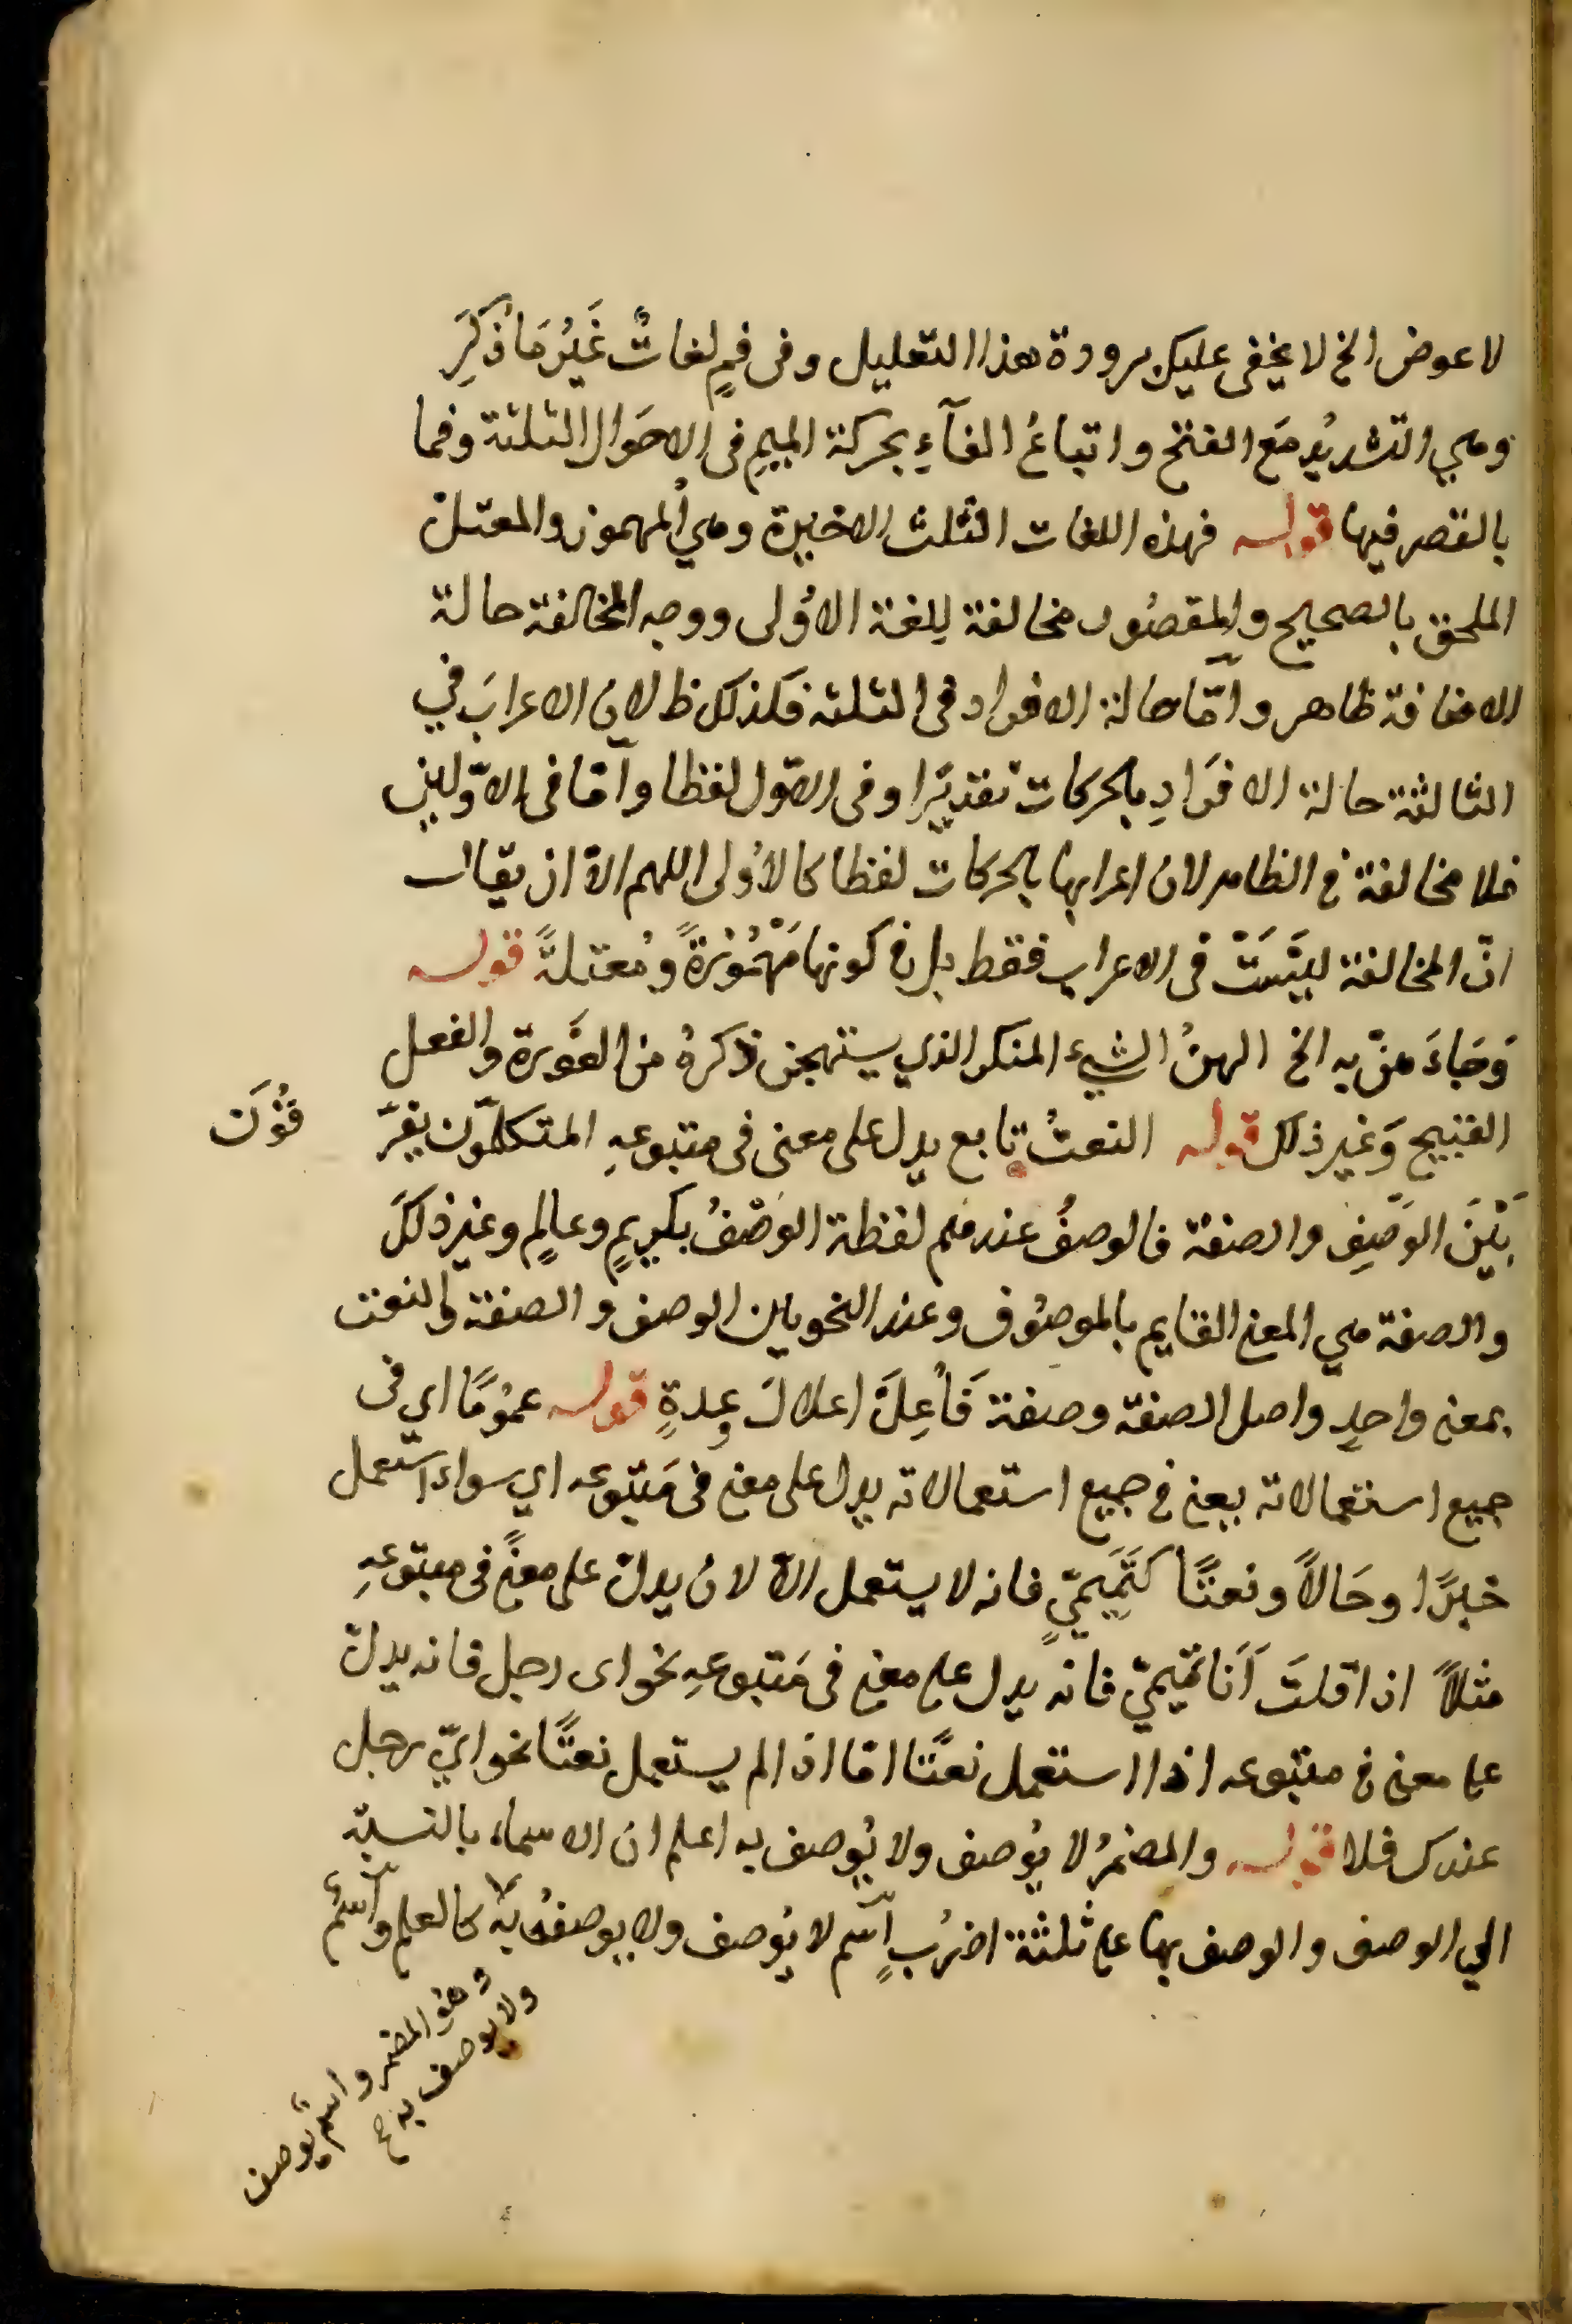 لا عوض الخ لا يخفى عليك برودة هذا التعليل وفى فمٍ لغاتٌ غَيْرُ مَا ذُكِرَ
وهي التشديدُ مَع الفتح واتباعُ الفآءِ بحركة الميمِ فى الاحوَال الثلثة وفما
بالقصر فيها قوله فهذه اللغات الثلث الاخيرة وهي المهموز والمعتل
الملحق بالصحيح والمقصُور مخالفة للغة الاوُلى ووجه المخالفة حالة
الاضافة ظاهر وامّا حالة الافراد فى الثلثه فكذلك ظ لان الاعرابَ في
الثالثة حالة الافرَادِ بالحركات تقديرًا وفى الاوّل لفظا وامّا فى الاوّلين
فلا مخالفة فى الظاهر لان اعرابها بالحركات لفظا كالاُولى اللهم الاّ ان يقال
انّ المخالفة ليسَتْ فى الاعراب فقط بل فى كونها مَهْمُوْزةً ومُعتلةً قوله
وَجَاءَ هنّ به الخ الهنُ الشيء المنكر الذي يستهجن ذكرهُ من العَورة والفعل
القبيح وَغير ذلك قوله النعتُ تابع يدل على معنى فى متبوعهِ المتكلمّون يفرّ
قُوْنَ
بَيْنَ الوَصْفِ والصفة فالوصفُ عندهم لفظة الوَصْفُ بكريمٍ وعالمٍ وغير ذلكَ
والصفة هي المعنى القايم بالموصُوف وعند النحويين الوصف والصفة والنعت
بمعنى واحدٍ واصل الصفة وصفة فَاُعِلَّ اعلالَ وعدةٍ قوله عمُومًا اي فى
جميع استعمالاته يعنى فى جميع استعمالاته يدل على معنى فى مَتبوعه اي سواء استعمل
خبرًا وحَالاً ونعتًا كتَمِيميّ فانه لا يستعمل الاّ لان يدلّ على معنًى فى متبوعهِ
مثلاً اذا قلتَ اَنا تميميّ فانه يدل على معنى فى مَتبوعهِ نحو اى رجل فانه يدل
على معنى فى متبوعه اذا استعمل نعتًا امّا اذا لم يستعمل نعتًا نحو ايّ رجل
عندك فلا قوله والمضمرُ لا يُوصف ولا يُوصف به اعلم ان الاسماء بالنسبة
الي الوصف والوصف بها على ثلثة اضرُبٍ اسْم لا يُوصف ولا يوصفُ به كالعلم واسْمٌ
وهو المضمر واسم يُوصف
ولا يوصف به صح